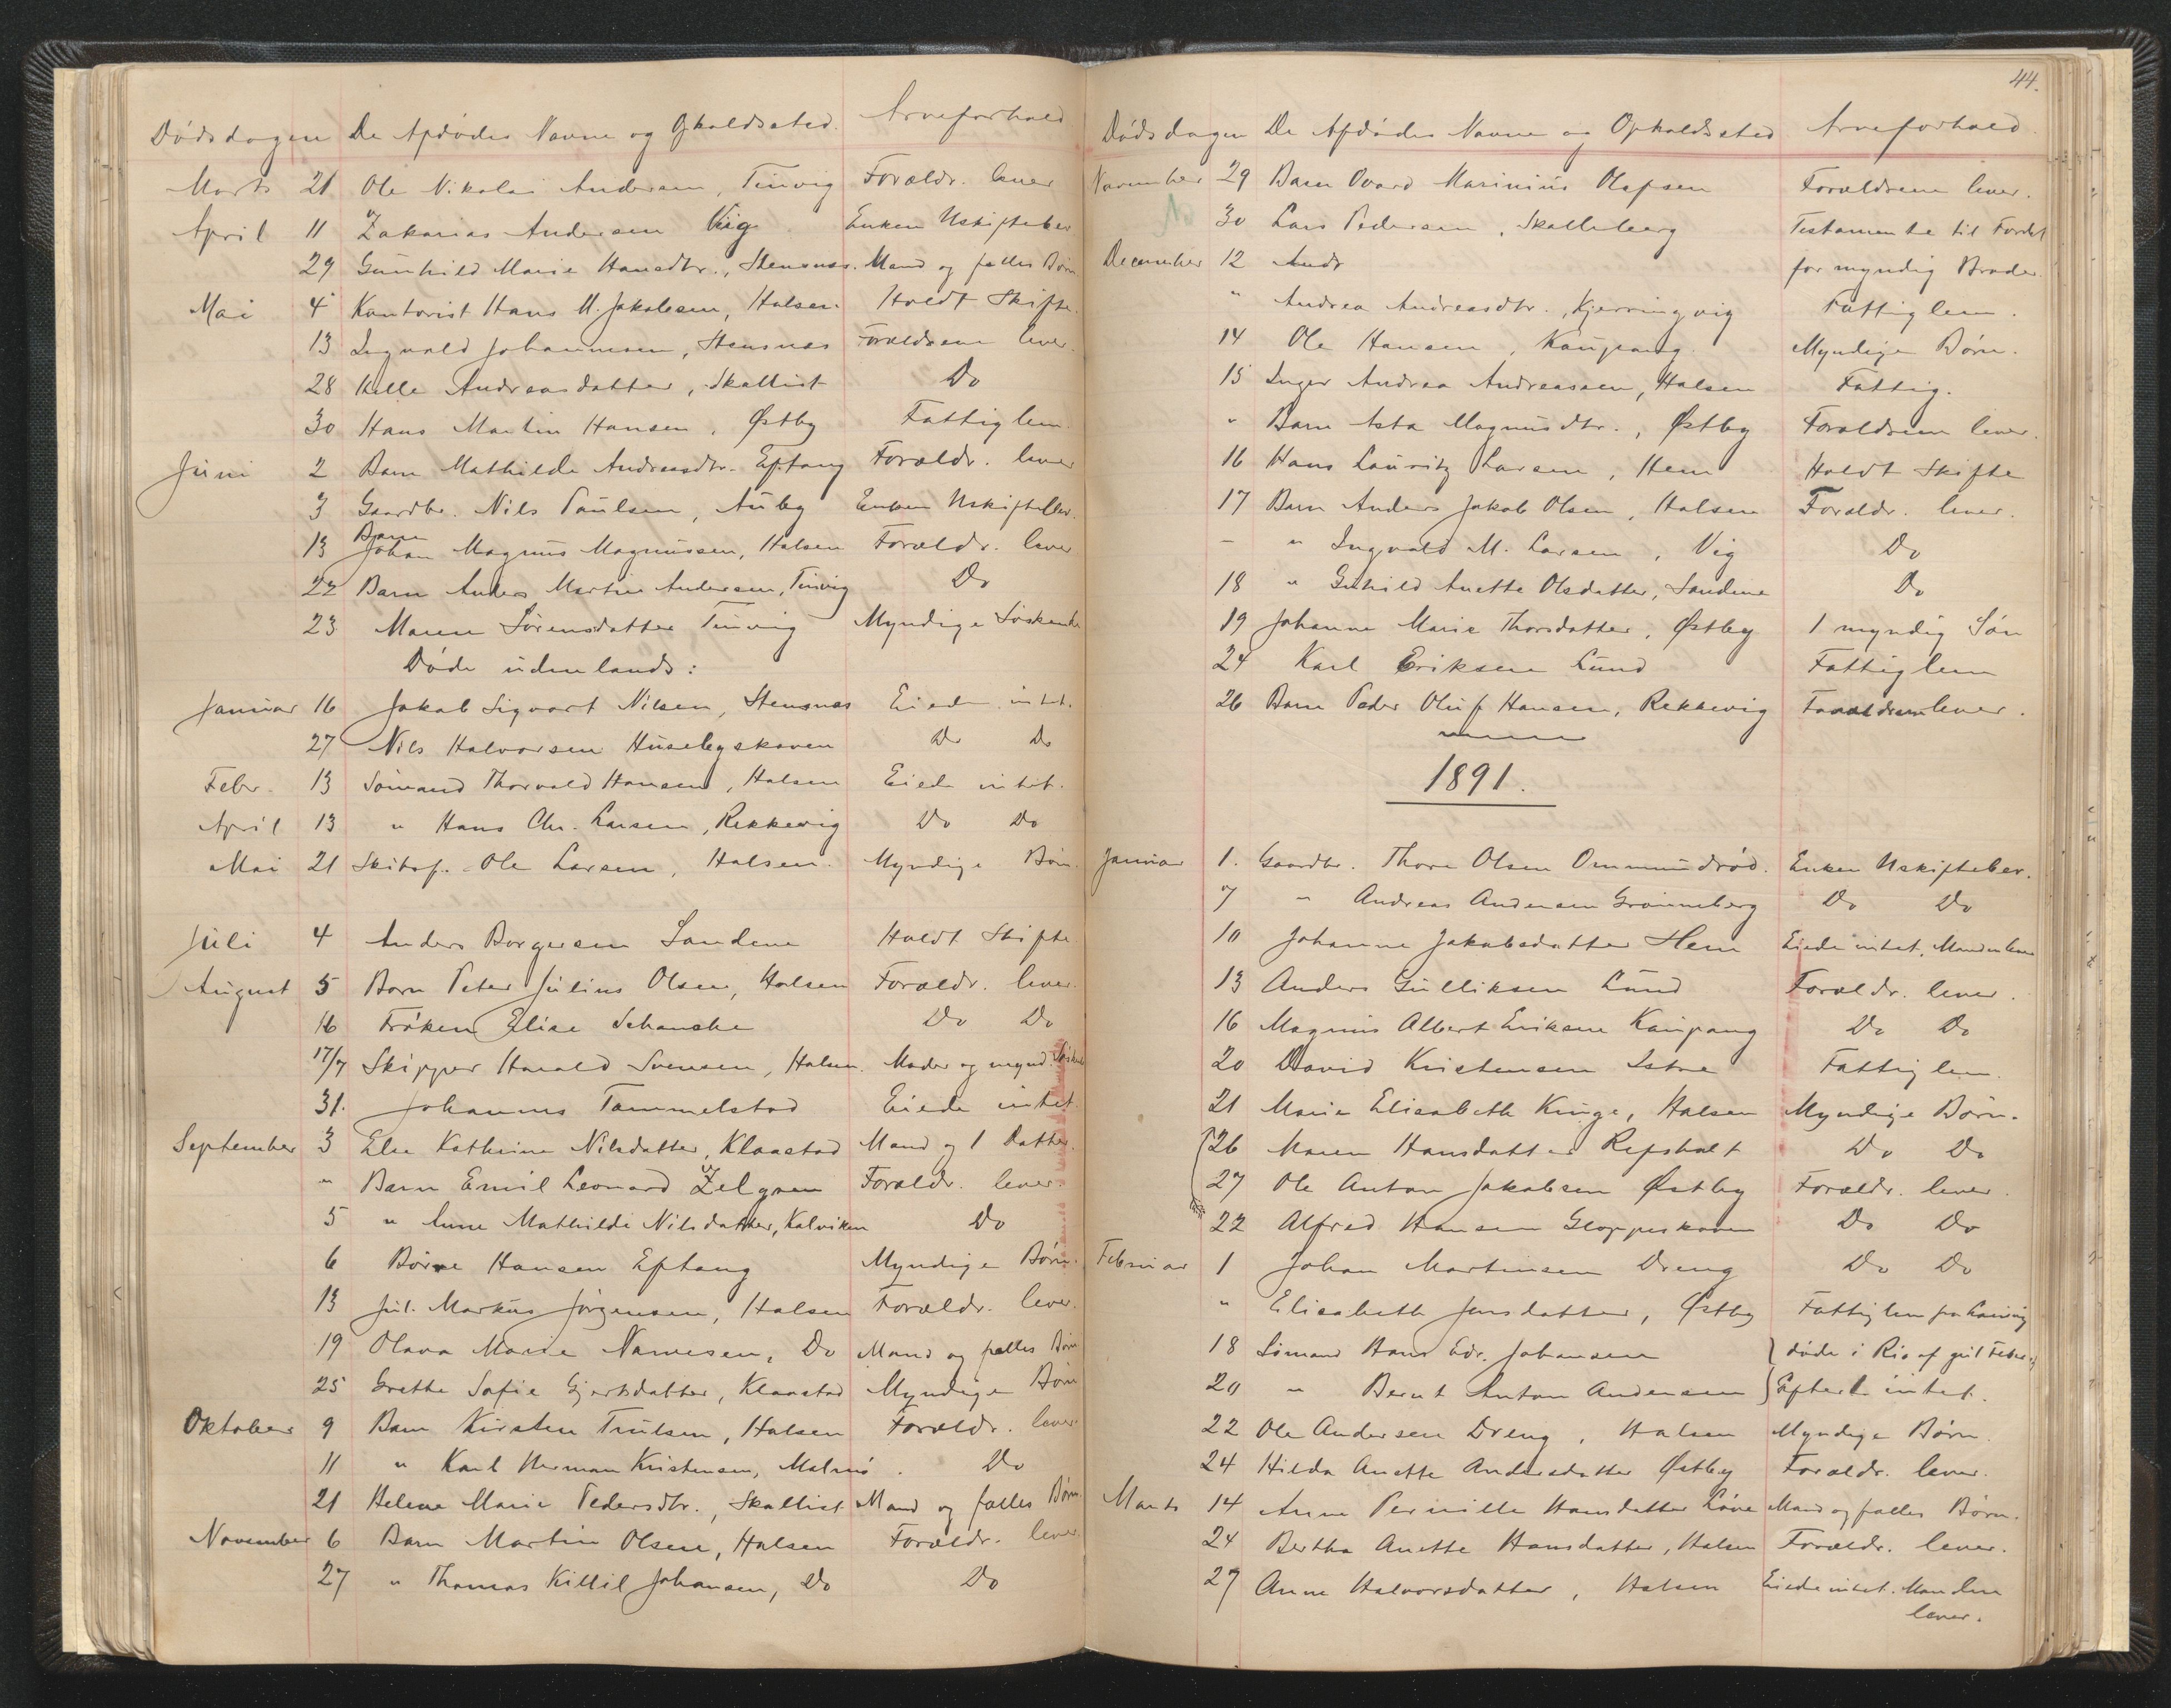 Dødsdagen De Afdødes Navne og Opholdssted. Arveforhold
Marts 21 Ole Nikolai Andersen, Tinvig Forældr. lever
April 11 Zakarias Andersen Vig Enken Uskiftebev
29 Gunhild Marie Hansdtr., Stensnæs. Mand og fælles Børn
Mai 4 Kontorist Hans M. Jakobsen, Halsen. Holdt Skifte.
13 Ingvald Johannesen, Stensnæs Forældrene lever.
28 Helle Andreasdatter, Skallist Do
30 Hans Martin Hansen, Østby Fattiglem
Juni 2 Barn Mathilde Andreasdtr. Eftang Forældr. lever
3 Gaardbr. Nils Paulsen, Auby Enken Uskiftebev.
13 Barn Johan Magnus Magnussen, Halsen Forældr. lever
22 Barn Anders Martin Andersen, Tinvig Do
23 Maren Sørensdatter Tinvig Myndige Søskende
Døde udenlands:
Januar 16 Jakob Sigvart Nilsen, Stensnæs Eiede intet.
27 Nils Halvorsen Husebyskoven Do Do
Febr. 13 Sømand Thorvald Hansen, Halsen Eiede intet.
April 13 " Hans Chr. Larsen, Rekkevig Do Do
Mai 21 Skibsf. Ole Larsen, Halsen. Myndige Børn.
Juli 4 Anders Borgersen Sandene Holdt Skifte
August 5 Barn Peter Julius Olsen, Halsen Forældr. lever.
16 Frøken Elise Schanche Do Do
17/7 Skipper Harald Svensen, Halsen. Moder og mynd. Søskende
31. Johannes Tammelstad Eiede intet
September 3 Else Kathrine Nilsdatter, Klaastad Mand og 1 Datter.
" Barn Emil Leonard Zelgren Forældr. lever.
5 " Anne Mathilde Nilsdatter, Kalviken Do
6 Børre Hansen Eftang Myndige Børn.
13 Jul. Markus Jørgensen, Halsen Forældr. lever.
19 Olava Marie Narvesen, Do Mand og fælles Børn
25 Grethe Sofie Gjertsdatter, Klaastad Myndige Børn
Oktober 9 Barn Kirsten Trulsen, Halsen Forældr. lever.
11 " Karl Herman Kristensen, Malmø. Do
21 Helene Marie Pedersdtr., Skallist Mand og fælles Børn.
November 6 Barn Martin Olsen, Halsen Forældr. lever.
27 " Thomas Killil Johansen, Do Do
44.
Dødsdagen De Afdødes Navne og Opholdssted Arveforhold.
November 29 Barn Ovard Marinius Olafsen Forældrene lever.
30 Lars Pedersen, Skalleberg Testamente til Fordel
December 12 Andr for myndig Broder.
" Andrea Andreasdtr., Kjerringvig Fattiglem.
14 Ole Hansen, Kaupang. Myndige Børn.
15 Inger Andrea Andreassen, Halsen Fattig.
" Barn Asta Magnusdtr., Østby Forældrene lever.
16 Hans Lauritz Larsen, Hem Holdt Skifte
17 Barn Anders Jakob Olsen, Halsen Forældr. lever.
" " Ingvald M. Larsen, Vig Do
18 " Gunhild Anette Olsdatter, Sandene Do
19 Johanne Marie Thorsdatter, Østby 1 myndig Søn
24 Karl Eriksen Lund Fattiglem
26 Barn Peder Oluf Hansen, Rekkevig Forældrene lever.
1891.
Januar 1. Gaardbr. Thore Olsen Ommundrød. Enken Uskiftebev.
7 " Andreas Andersen Grønneberg Do Do
10 Johanne Jakobsdatter Hem Eiede intet. Manden lever
13 Anders Gulliksen Lund Forældr. lever.
16 Magnus Albert Eriksen Kaupang Do Do
20 David Kristensen Istre Fattiglem.
21 Marie Elisabeth Kruge, Halsen Myndige Børn.
26 Maren Hansdatter Refsholt Do Do
27 Ole Anton Jakobsen Østby Forældr. lever.
22 Alfred Hansen Gloppeskoven Do Do
Februar 1 Johan Martinsen Dreng Do Do
" Elisabeth Jensdatter, Østby Fattiglem fra Laurvig
18 Sømand Hans Edv. Johansen } døde i Rio af gul Feber,
20 " Bernt Anton Andersen } Efterl. intet.
22 Ole Andersen Dreng, Halsen Myndige Børn.
24 Hilda Anette Andersdatter Østby Forældr. lever.
Marts 14 Anne Pernille Hansdatter Løve Mand og fælles Børn.
24 Bertha Anette Hansdatter, Halsen Forældr. lever.
27 Anne Halvorsdatter, Halsen Eiede intet. Manden
lever.